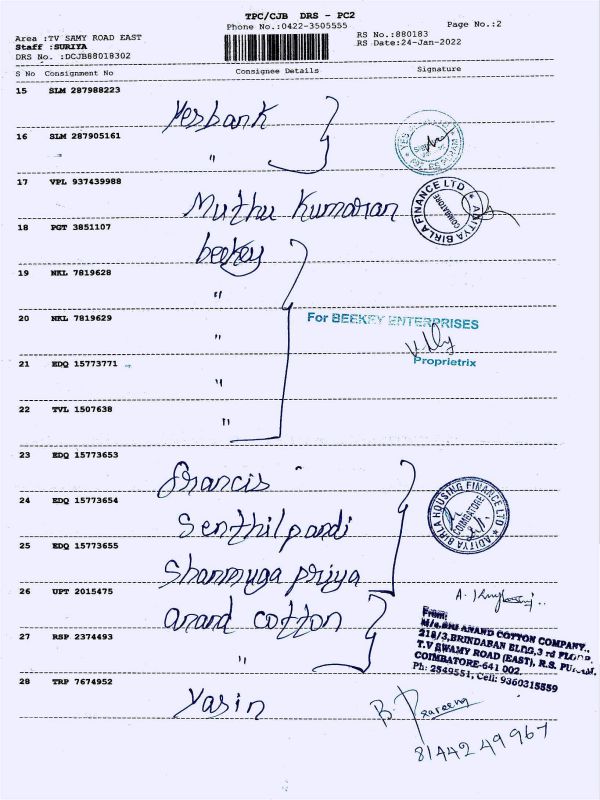 TPC/CJB DRS - PC2
Phone No.:0422-3505555
Page No.:2
Area :TV SAMY ROAD EAST
RS No.:880183
Staff :SURIYA
RS Date:24-Jan-2022
DRS No. :DCJB88018302
S No Consignment No Consignee Details Signature
15 SLM 287988223
Yesbank
16 SLM 287905161
"
17 VPL 937439988
Muthu Kumaran
ADITYA BIRLA FINANCE LTD
COIMBATORE
18 PGT 3851107
beekey
19 NKL 7819628
"
20 NKL 7819629
"
For BEEKEY ENTERPRISES
Proprietrix
21 EDQ 15773771
"
22 TVL 1507638
"
23 EDQ 15773653
Francis
24 EDQ 15773654
Senthilpandi
25 EDQ 15773655
Shanmuga priya
ADITYA BIRLA HOUSING FINANCE LTD
COIMBATORE
26 UPT 2015475
anand cotton
27 RSP 2374493
"
From:
M/s.SRI ANAND COTTON COMPANY.,
218/3,BRINDABAN BLDG,3 rd FLOOR,
T.V SWAMY ROAD (EAST), R.S.
COIMBATORE-641 002.
Ph: 2549551, Cell: 9360315559
28 TRP 7674952
Yasin
8144249967